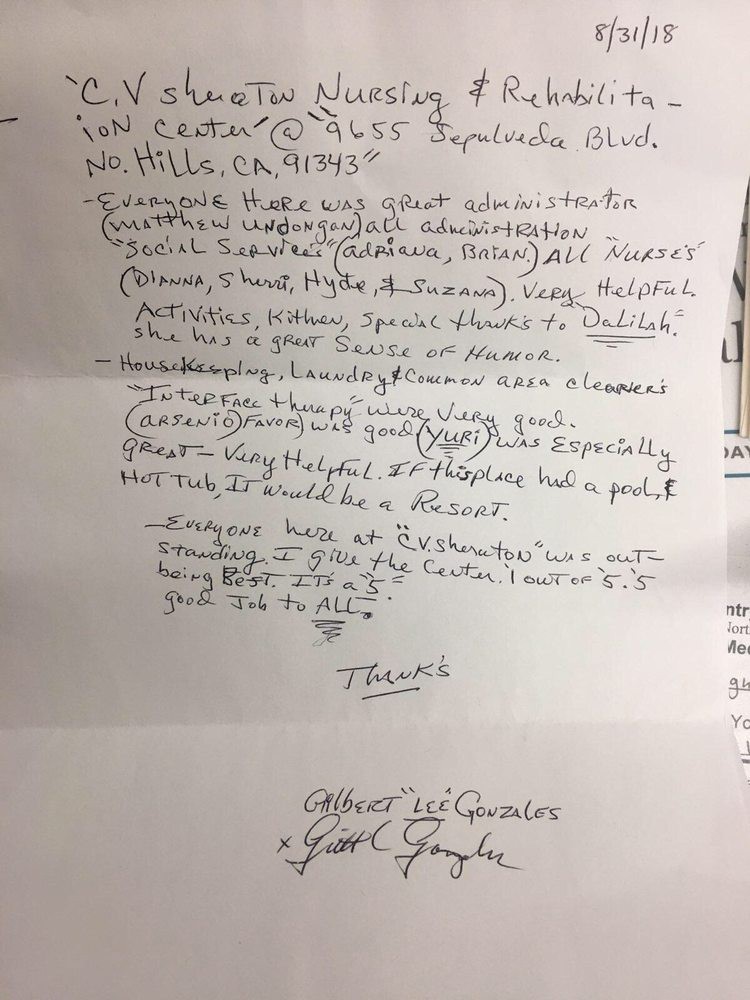 8/31/18
"C.V sheraTON NURSiNg & Rehabilita-
iON Center" @ "9655 Sepulveda Blvd.
No. Hills, CA, 91343"
- EVERYONE HERE WAS great administRATOR
(matthew UNDONgan) all administRATION
"Social Services" (adriana, BRiAN.) All "NURSE'S"
(DiANNA, Sherri, Hyde, & SUZANA). VERY HELPFUL.
Activities, Kithen, Special thank's to "DaLiLah."
she has a great Sense of HUMOR.
- HouseKeeping, LAUNDRY & Common area cleaner's
"InterFace therapy" were very good.
(ARSENIO) FAVOR) was good (YURi) was Especially
great - Very HELPFUL. IF this place had a pool, &
HOT TUB, IT would be a RESORT.
- EVERYONE here at "C.V. sheraton" was out-
standing. I give the Center. 1 out of "5." 5
being BEST. IT'S a "5."
good Job to ALL.
THANK'S
GilbERT "LEE" GONZALES
x